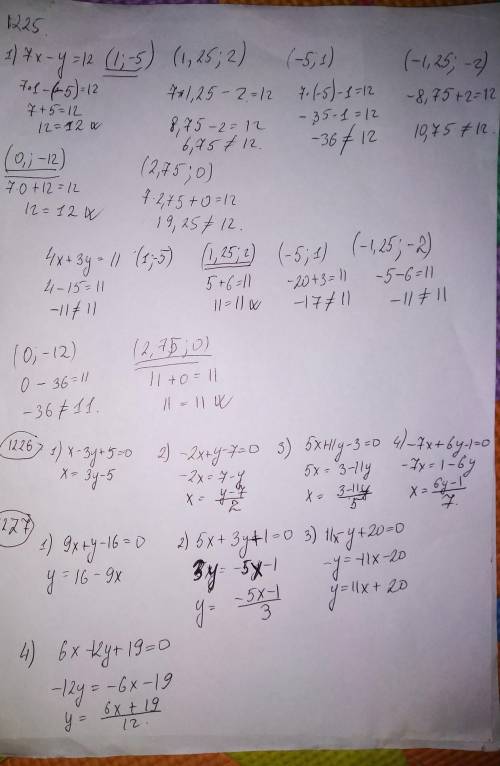 1225.
1) 7x-y=12 (1;-5) (1,25;2) (-5;1) (-1,25;-2)
7·1-(-5)=12 7·1,25-2=12 7·(-5)-1=12 -8,75+2=12
7+5=12 8,75-2=12 -35-1=12 10,75≠12.
12=12 6,75≠12. -36≠12
(0;-12) (2,75;0)
7·0+12=12 7·2,75+0=12
12=12 19,25≠12.
4x+3y=11 (1;-5) (1,25;2) (-5;1) (-1,25;-2)
4-15=11 5+6=11 -20+3=11 -5-6=11
-11≠11 11=11 -17≠11 -11≠11
(0;-12) (2,75;0)
0-36=11 11+0=11
-36≠11. 11=11
1226 1) x-3y+5=0 2) -2x+y-7=0 3) 5x+11y-3=0 4) -7x+6y-1=0
x=3y-5 -2x=7-y 5x=3-11y -7x=1-6y
x=\frac{y-7}{2} x=\frac{3-11y}{5} x=\frac{6y-1}{7}.
1227
1) 9x+y-16=0 2) 5x+3y+1=0 3) 11x-y+20=0
y=16-9x 3y=-5x-1 -y=-11x-20
y=\frac{-5x-1}{3} y=11x+20
4) 6x-12y+19=0
-12y=-6x-19
y=\frac{6x+19}{12}.